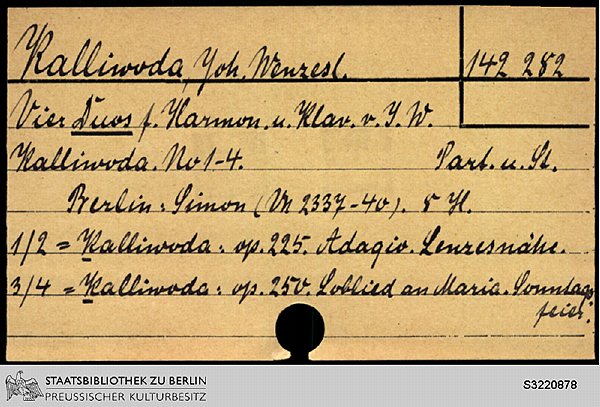 Kalliwoda, Joh. Wenzesl. 142 282
Vier Duos f. Harmon. u. Klav. v. J. W.
Kalliwoda. No 1-4. Part. u. St.
Berlin: Simon (Vn 2337-40). 8 H.
1/2 = Kalliwoda: op. 225. Adagio. Lenzesnähe.
3/4 = Kalliwoda: op. 250. Loblied an Maria. Sonntags
feier.
STAATSBIBLIOTHEK ZU BERLIN
PREUSSISCHER KULTURBESITZ
S3220878